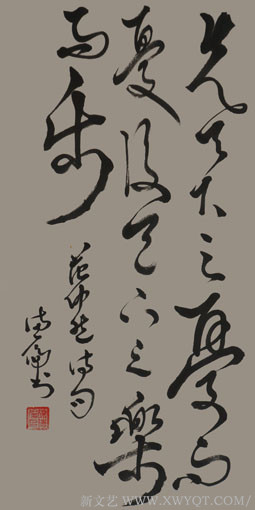 先天下之憂而
憂後天下之樂
而乐
范仲淹诗句
书
新文艺 WWW.XWYQT.COM